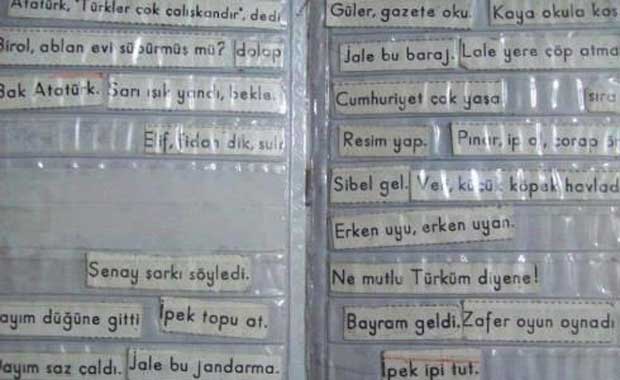 Atatürk, "Türkler çok çalışkandır", dedi
Birol, ablan evi süpürmüş mü? dolap
Bak Atatürk. Sarı ışık yandı, bekle.
Elif, fidan dik, sula
Şenay şarkı söyledi.
ayım düğüne gitti İpek topu at.
Dayım saz çaldı. Jale bu jandarma.
Güler, gazete oku. Kaya okula koş
Jale bu baraj. Lale yere çöp atma
Cumhuriyet çok yaşa sıra
Resim yap. Pınar, ip al, çorap ör
Sibel gel. Veli, küçük köpek havlad
Erken uyu, erken uyan.
Ne mutlu Türküm diyene!
Bayram geldi. Zafer oyun oynadı
İpek ipi tut.